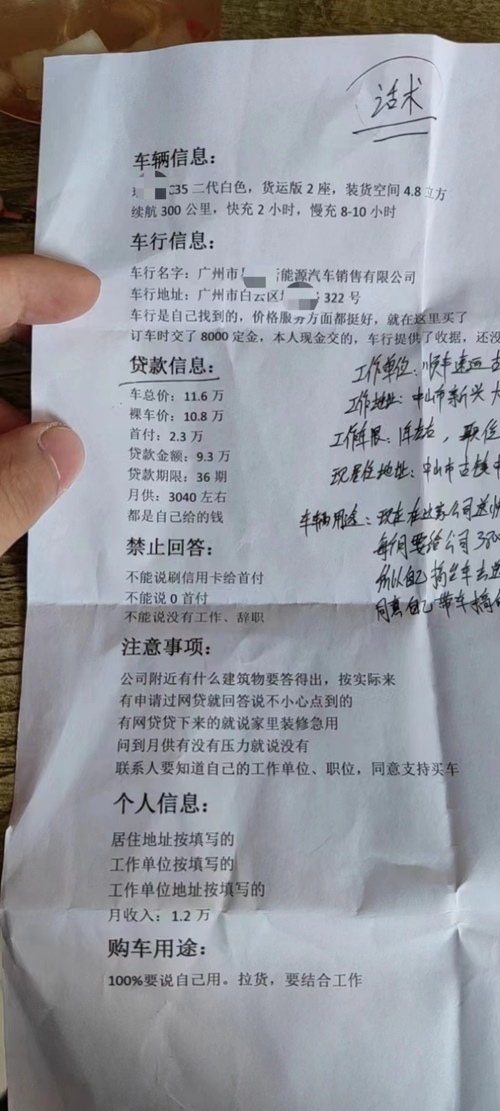 话术
车辆信息：
35 二代白色，货运版 2 座，装货空间 4.8 立方
续航 300 公里，快充 2 小时，慢充 8-10 小时
车行信息：
车行名字：广州市 新能源汽车销售有限公司
车行地址：广州市白云区 322 号
车行是自己找到的，价格服务方面都挺好，就在这里买了
订车时交了 8000 定金，本人现金交的，车行提供了收据，还没
贷款信息：
车总价：11.6 万
裸车价：10.8 万
首付：2.3 万
贷款金额：9.3 万
贷款期限：36 期
月供：3040 左右
都是自己给的钱
工作单位：顺丰速运
工作地址：中山市新兴大
工作年限： 左右，职位
现居住地址：中山市古镇
车辆用途：现在在这家公司送
每个月要给公司
所以自己搞台车去
同意自己带车搞
禁止回答：
不能说刷信用卡给首付
不能说 0 首付
不能说没有工作、辞职
注意事项：
公司附近有什么建筑物要答得出，按实际来
有申请过网贷就回答说不小心点到的
有网贷贷下来的就说家里装修急用
问到月供有没有压力就说没有
联系人要知道自己的工作单位、职位，同意支持买车
个人信息：
居住地址按填写的
工作单位按填写的
工作单位地址按填写的
月收入：1.2 万
购车用途：
100%要说自己用。拉货，要结合工作